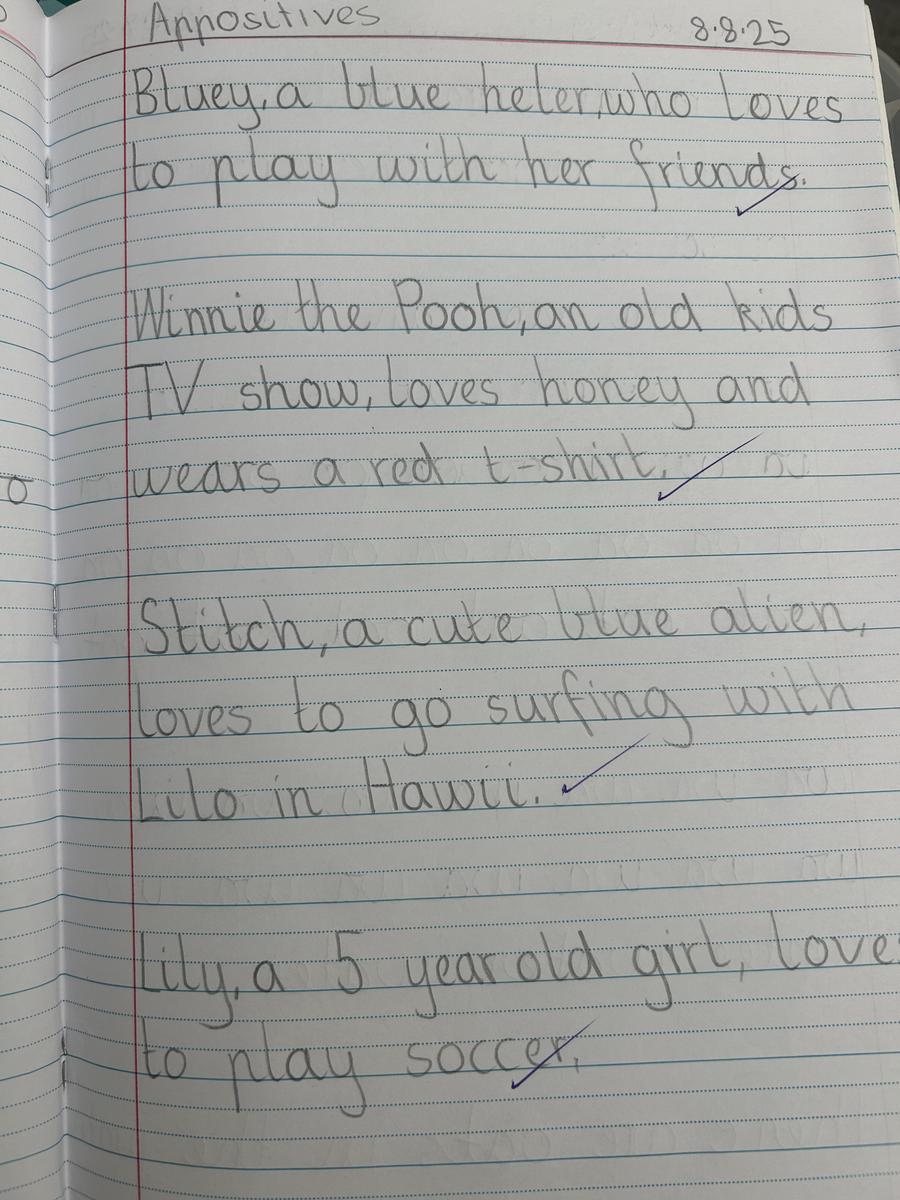 Appositives 8.8.25
Bluey, a blue heler, who loves
to play with her friends.
Winnie the Pooh, an old kids
TV show, loves honey and
wears a red t-shirt.
Stitch, a cute blue alien,
loves to go surfing with
Lilo in Hawii.
Lily, a 5 year old girl, love
to play soccer.